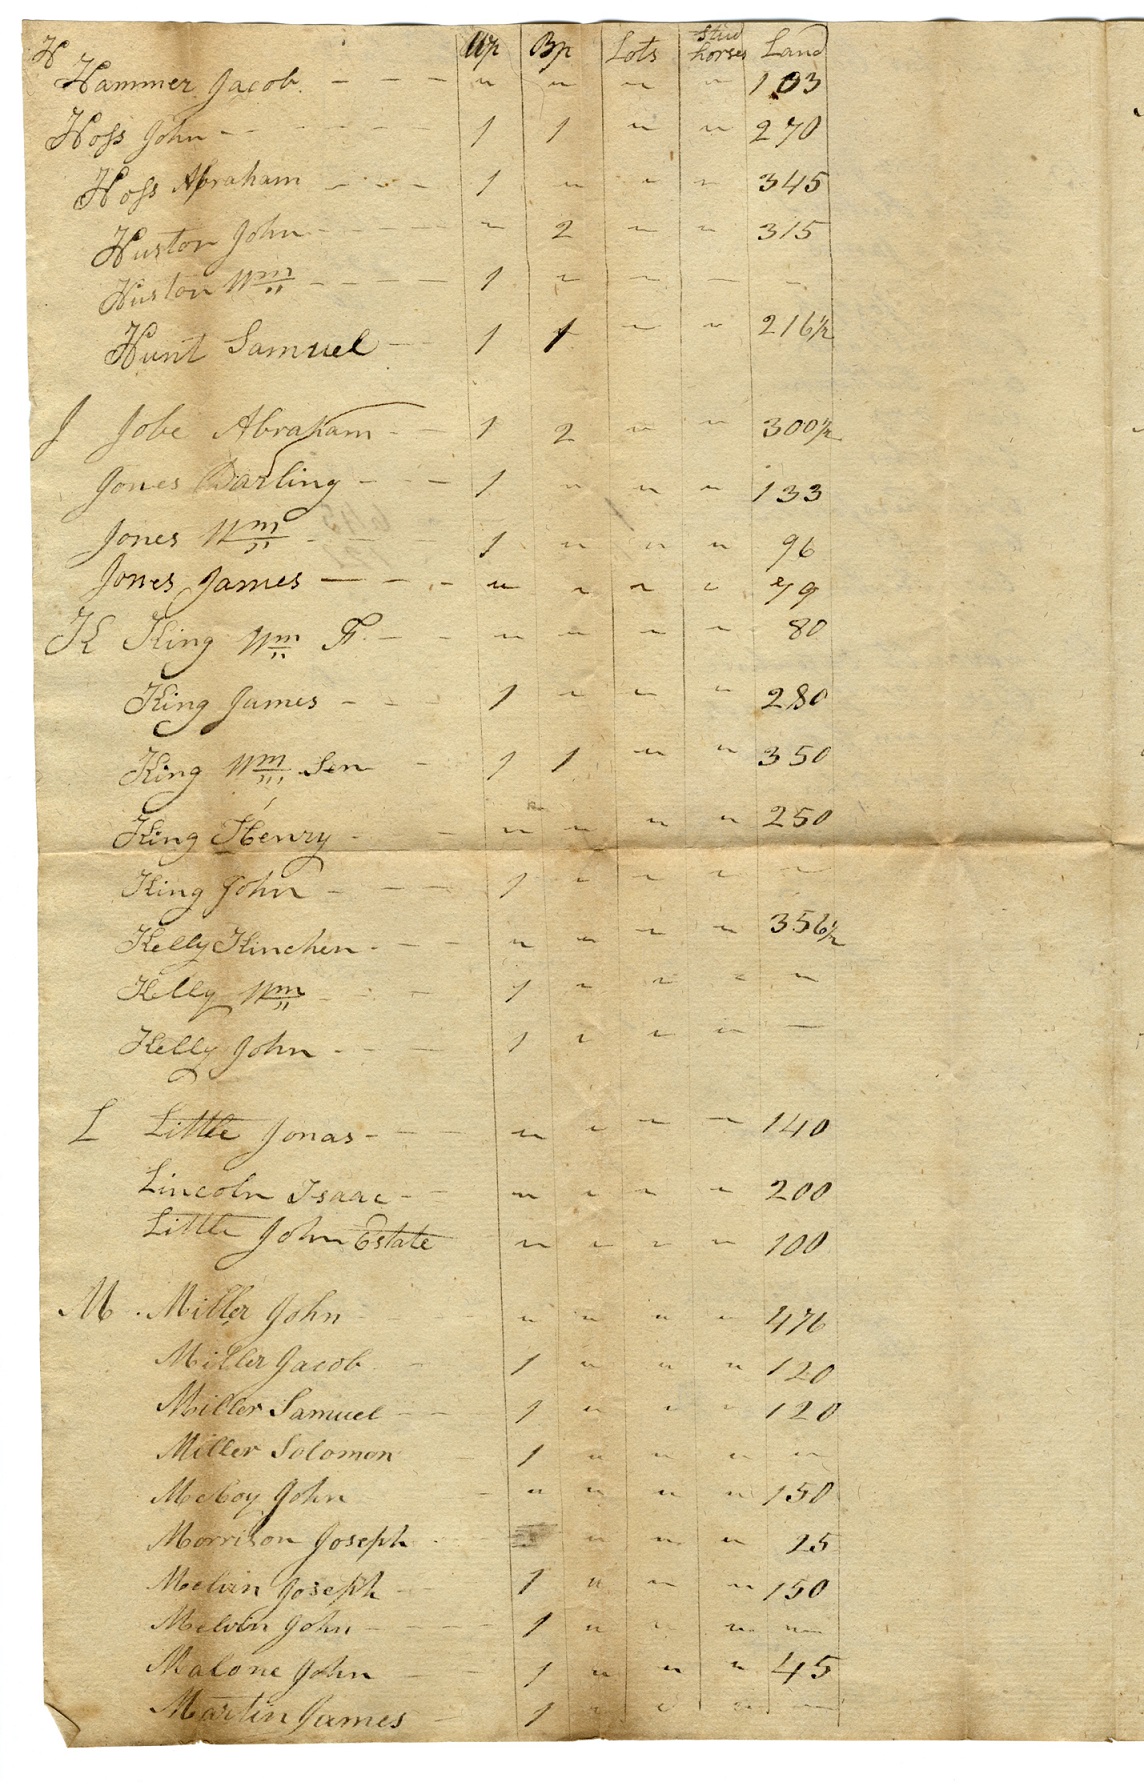 H Wp Bp Lots Stud horses Land
Hammer Jacob - - - " " " " 103
Hoss John - - - - - 1 1 " " 270
Hoss Abraham - - - 1 " " " 345
Huston John - - - - " 2 " " 315
Huston Wm - - - - 1 " " - -
Hunt Samuel - - 1 1 " " 216½
J Jobe Abraham - - 1 2 " " 300½
Jones Darling - - - 1 " " " 133
Jones Wm - - - 1 " " " 96
Jones James - - - " " " " 79
K King Wm F. - - " " " " 80
King James - - - 1 " " " 280
King Wm Sen - 1 1 " " 350
King Henry - - " " " " 250
King John - - - 1 " " " "
Kelly Kinchen - - - " " " " 356½
Kelly Wm - - - 1 " " " "
Kelly John - - - 1 " " " -
L Little Jonas - - - " " " " 140
Lincoln Isaac - - " " " " 200
Little John Estate " " " " 100
M Miller John - - - " " " " 476
Miller Jacob - 1 " " " 120
Miller Samuel - - 1 " " " 120
Miller Solomon - 1 " " " "
McCoy John - " " " " 150
Morrison Joseph - - " " " 25
Melvin Joseph - - 1 " " " 150
Melvin John - - - - 1 " " " "
Malone John - - 1 " " " 45
Martin James - 1 " " " -